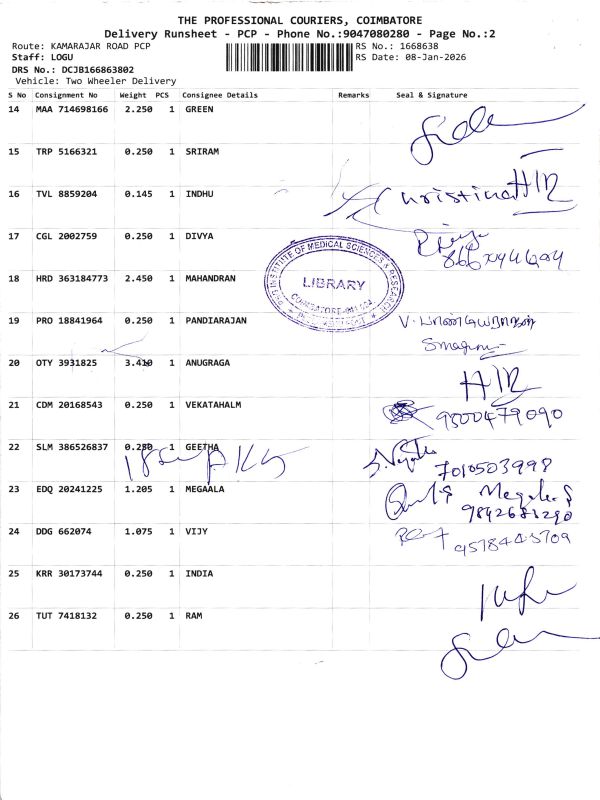 THE PROFESSIONAL COURIERS, COIMBATORE
Delivery Runsheet - PCP - Phone No.:9047080280 - Page No.:2
Route: KAMARAJAR ROAD PCP
RS No.: 1668638
Staff: LOGU
RS Date: 08-Jan-2026
DRS No.: DCJB166863802
Vehicle: Two Wheeler Delivery
S No Consignment No Weight PCS Consignee Details Remarks Seal & Signature
14 MAA 714698166 2.250 1 GREEN
15 TRP 5166321 0.250 1 SRIRAM
16 TVL 8859204 0.145 1 INDHU
17 CGL 2002759 0.250 1 DIVYA
18 HRD 363184773 2.450 1 MAHANDRAN
LIBRARY
19 PRO 18841964 0.250 1 PANDIARAJAN
20 OTY 3931825 3.410 1 ANUGRAGA
21 CDM 20168543 0.250 1 VEKATAHALM
9300479090
22 SLM 386526837 0.250 1 GEETHA
7010503998
23 EDQ 20241225 1.205 1 MEGAALA
24 DDG 662074 1.075 1 VIJY
25 KRR 30173744 0.250 1 INDIA
26 TUT 7418132 0.250 1 RAM